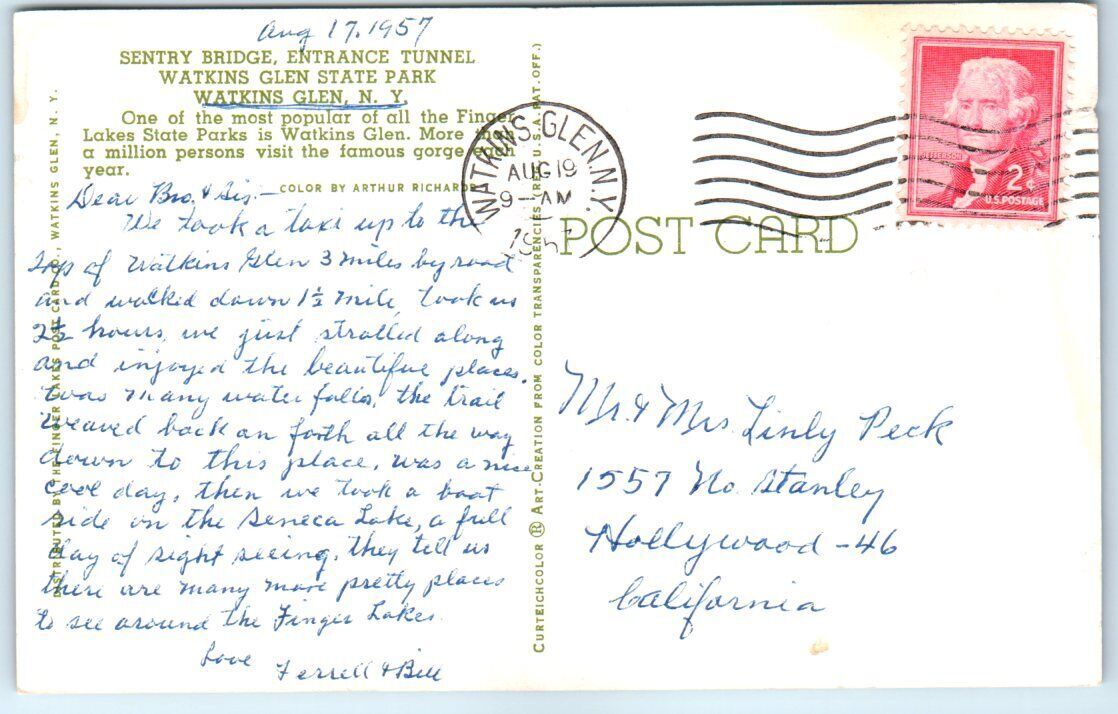 Aug 17, 1957
SENTRY BRIDGE, ENTRANCE TUNNEL
WATKINS GLEN STATE PARK
WATKINS GLEN, N. Y.
One of the most popular of all the Finger
Lakes State Parks is Watkins Glen. More than
a million persons visit the famous gorge each
year.
COLOR BY ARTHUR RICHARDS
Dear Bro. & Sis:—
We took a taxi up to the
top of Watkins Glen 3 miles by road
and walked down 1½ mile, took us
2½ hours, we just strolled along
and injoyed the beautiful places.
twas many water falls, the trail
weaved back an forth all the way
down to this place, was a nice
cool day, then we took a boat
ride on the Seneca Lake, a full
day of sight seeing, they tell us
there are many more pretty places
to see around the Finger Lakes.
Love
Ferrell & Bill
DISTRIBUTED BY THE FINGER LAKES POST CARD CO., WATKINS GLEN, N. Y.
CURTEICHCOLOR ® ART-CREATION FROM COLOR TRANSPARENCIES (REG. U.S.A. PAT. OFF.)
WATKINS GLEN, N.Y.
AUG 19
9—AM
1957
JEFFERSON
2¢
U.S. POSTAGE
POST CARD
Mr. & Mrs. Linly Peck
1557 No. Stanley
Hollywood - 46
California